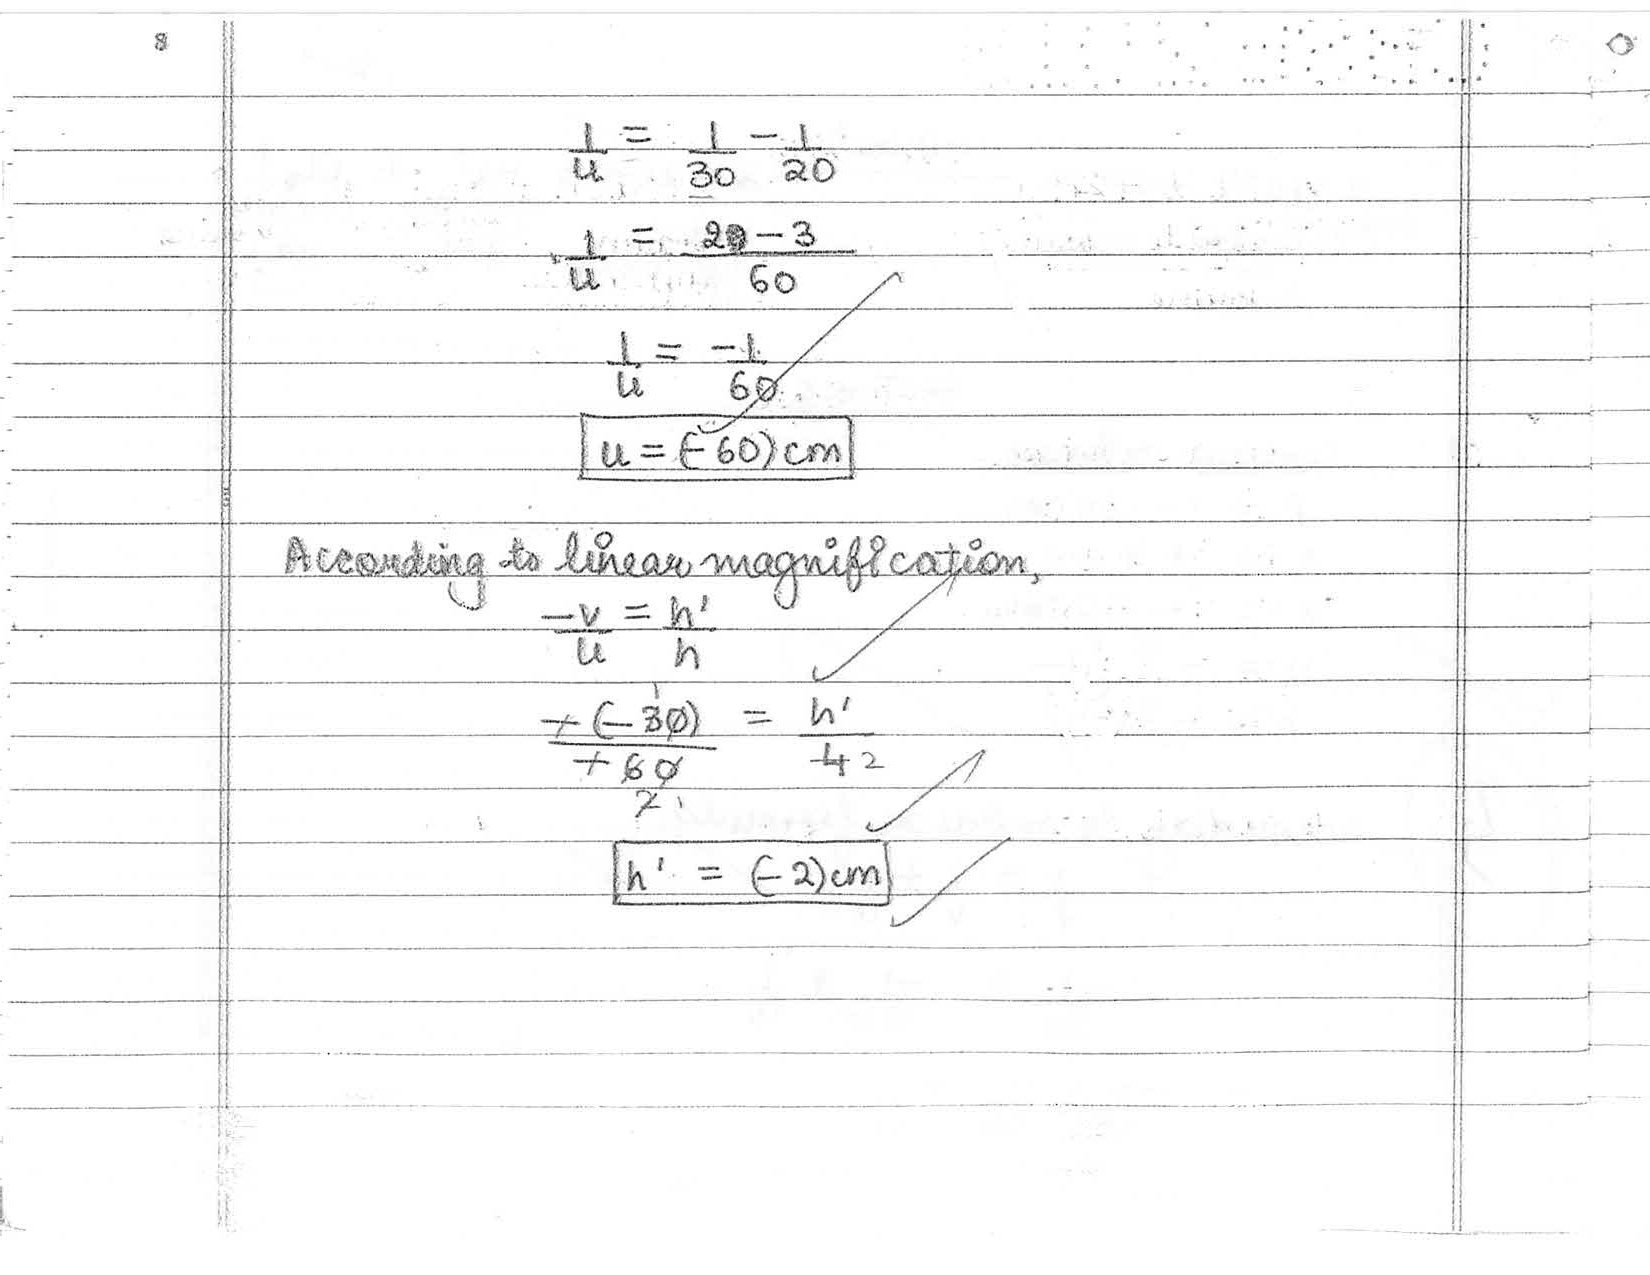 8
1/u = 1/30 - 1/20
1/u = 2 - 3/60
1/u = -1/60
u = (-60) cm
According to linear magnification,
-v/u = h'/h
-(-30)/-60 = h'/4
1 2 2
h' = (-2) cm